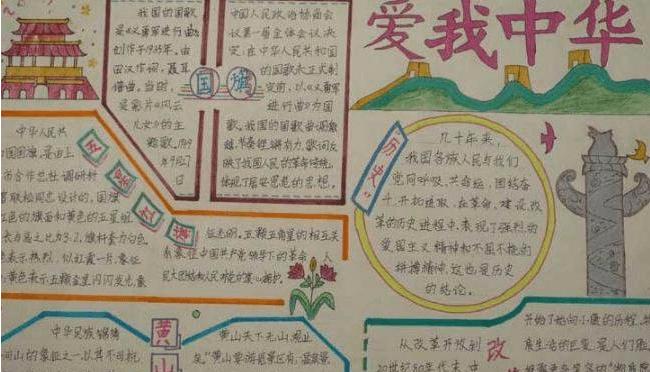 爱我中华
我国的国歌
是《义勇军进行曲》
创作于1935年。由
田汉作词，聂耳
借曲。当时，
是影片《风云
儿女》的主
题歌。1949
年9月27
日
国旗
中国人民政治协商会
议第一届全体会议决
定，在中华人民共和国
的国歌未正式制
定前，以《义勇军
进行曲》为国
歌。我国的国歌曲调激
思的思想。
五星红旗
中华人民共
国国旗，是由上
市合作总社调研科
联松同志设计的，国旗
红色的旗面和黄色的五星组
长与高之比为3:2，旗杆套为白色
色表示热烈，似红霞一片，象征
，黄色表示五颗金星闪闪发光，象
征光明。五颗五角星的相互关
系象征中国共产党领导下的革命人
民大团结和人民对党的衷心拥护。
历史
九十年来，
我国各族人民与我们
党同呼吸、共命运、团结奋
斗、开拓进取，在革命、建设、改
革的历史进程中，表现了强烈的
爱国主义精神和不屈不挠的
拼搏精神，这也是历史
的结论。
黄山
中华民族锦绣
河山的象征之一，以其不可抗
黄山天下无山，观止
矣”黄山
开始了她向小康的历程，
展生活的巨变，是人们
改
从改革开放到
20世纪80年代末，中